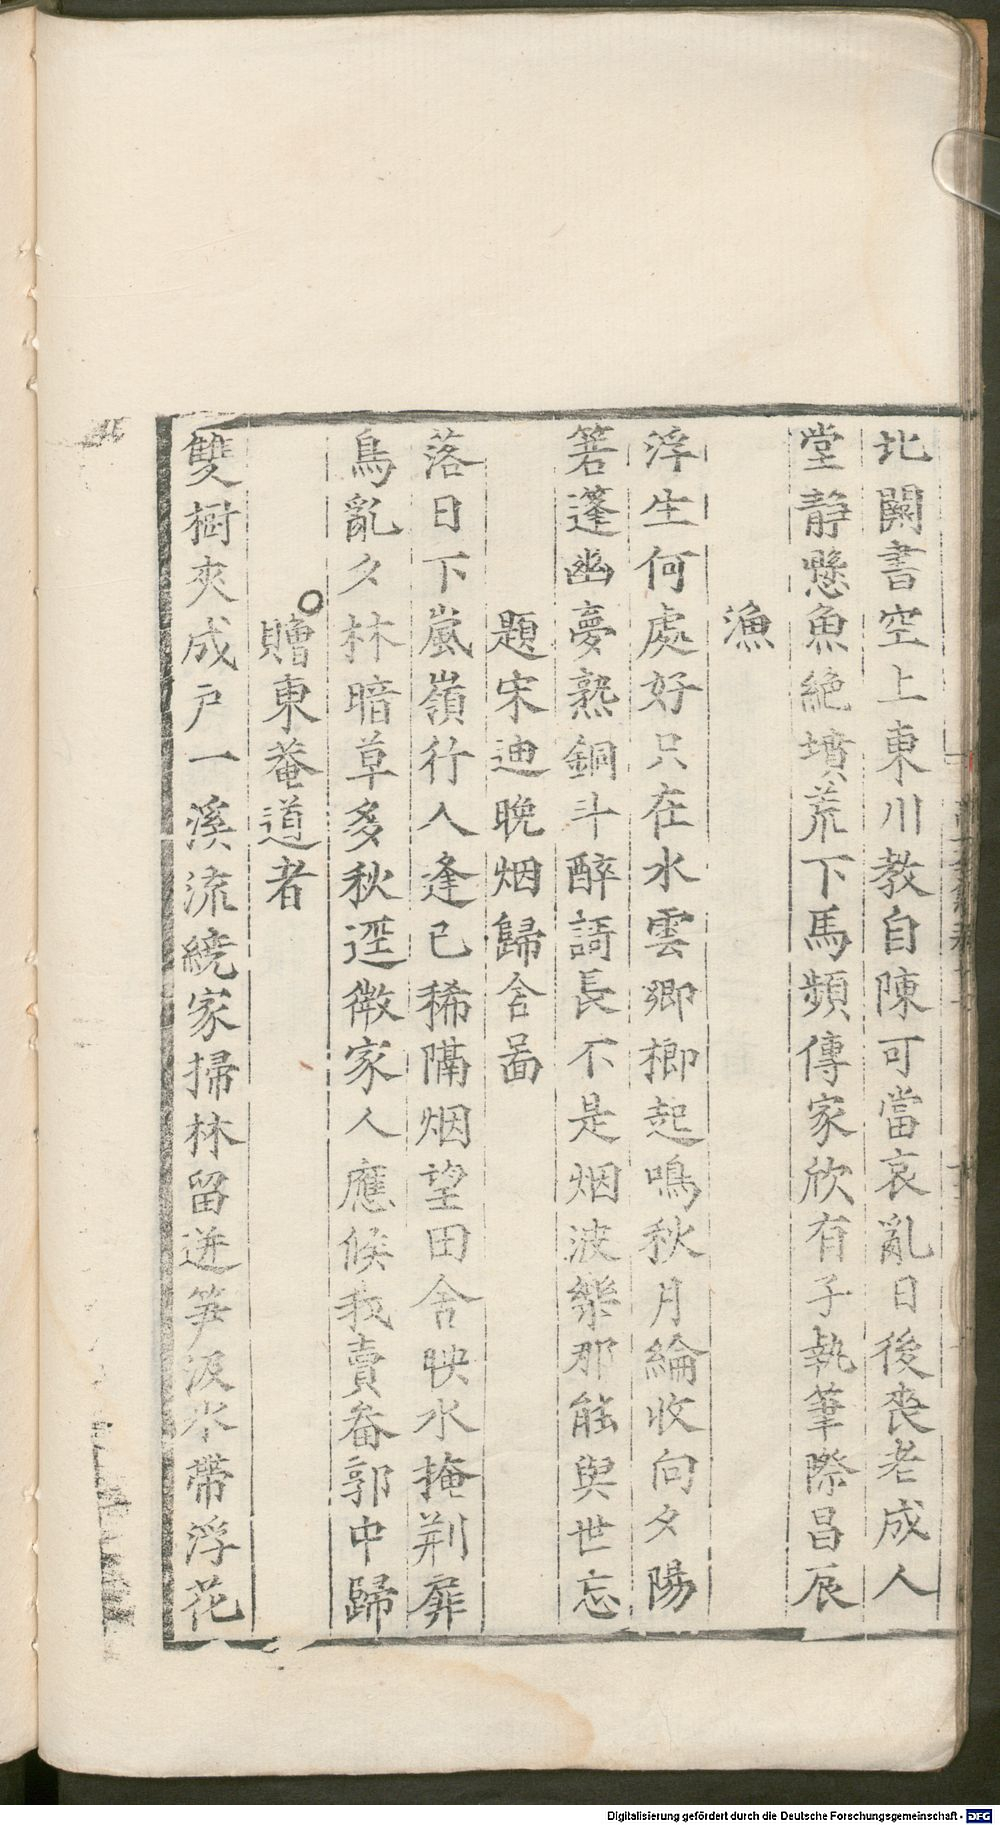 北闕書空上東川教自陳可當哀亂日後喪老成人
堂靜懸魚絕墳荒下馬頻傳家欣有子執筆際昌辰
漁
浮生何處好只在水雲鄉榔起鳴秋月綸收向夕陽
箬蓬幽夢熟銅斗醉謌長不是烟波樂那能與世忘
題宋迪晚烟歸舍畐
落日下嵐嶺行人逢已稀隔烟望田舍映水掩荆扉
鳥亂夂林暗草多秋逕微家人應候我賣畚郭中歸
贈東菴道者
雙樹夾成戶一溪流繞家掃林留迸笋汲水帶浮花
Digitalisierung gefördert durch die Deutsche Forschungsgemeinschaft - DFG